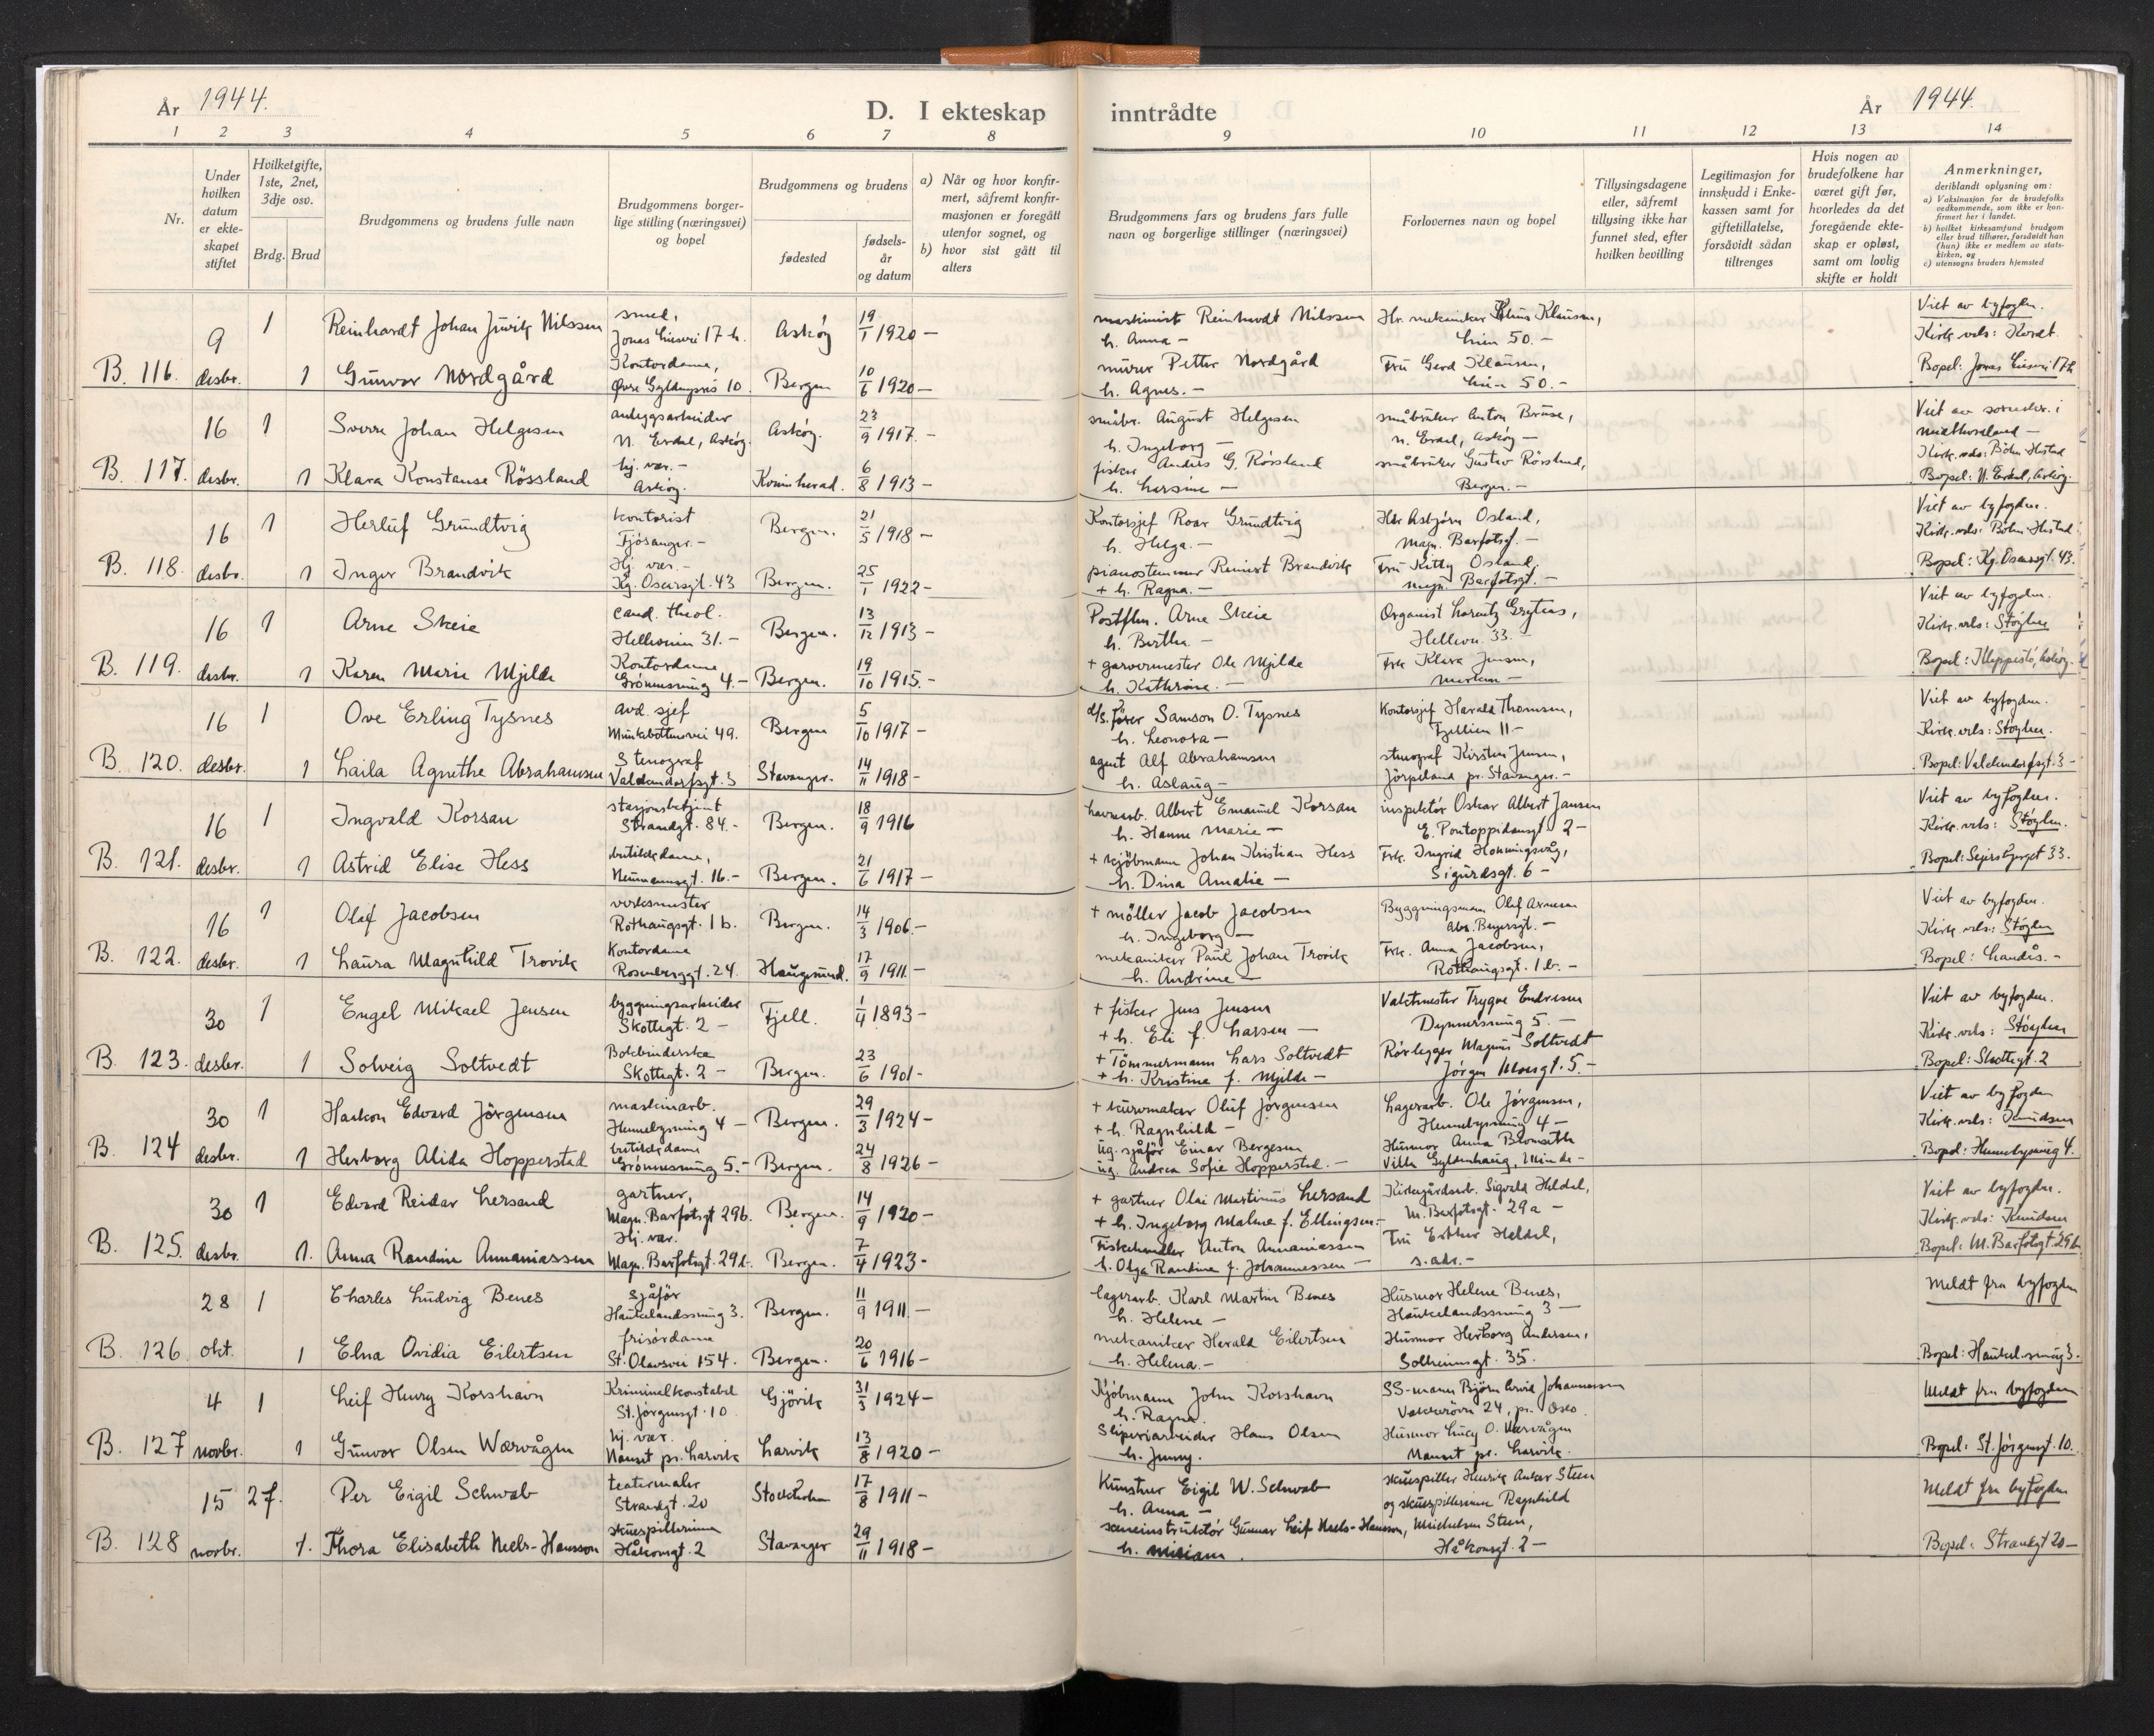 År 1944.
D. I ekteskap inntrådte
År 1944.
1 2 3 4 5 6 7 8 9 10 11 12 13 14
Nr.
Under hvilken datum er ekteskapet stiftet
Hvilket gifte, 1ste, 2net, 3dje osv.
Brdg. Brud
Brudgommens og brudens fulle navn
Brudgommens borgerlige stilling (næringsvei) og bopel
Brudgommens og brudens
fødested
fødselsår og datum
a) Når og hvor konfirmert, såfremt konfirmasjonen er foregått utenfor sognet, og
b) hvor sist gått til alters
Brudgommens fars og brudens fars fulle navn og borgerlige stillinger (næringsvei)
Forlovernes navn og bopel
Tillysingsdagene eller, såfremt tillysing ikke har funnet sted, efter hvilken bevilling
Legitimasjon for innskudd i Enkekassen samt for giftetillatelse, forsåvidt sådan tiltrenges
Hvis nogen av brudefolkene har været gift før, hvorledes da det foregående ekteskap er opløst, samt om lovlig skifte er holdt
Anmerkninger,
deriblandt oplysning om:
a) Vaksinasjon for de brudefolks vedkommende, som ikke er konfirmert her i landet.
b) hvilket kirkesamfund brudgom eller brud tilhører, forsåvidt han (hun) ikke er medlem av statskirken, og
c) utensogns bruders hjemsted
9 1 Reinhardt Johan Juvik Nilssen smed, Jonas Liesvei 17 h. Askøy 19/1 1920 – maskinist Reinhardt Nilssen h. Anna – Hr. mekaniker Klaus Klausen, Lien 50. – Viet av byfogden. Kirk. vels: Kvadt.
B. 116. desbr. 1 Gunvor Nordgård Kontordame, Øvre Gyldenpris 10. Bergen 10/6 1920 – murer Petter Nordgård h. Agnes. – Fru Gerd Klausen, Lien 50. – Bopel: Jonas Liesvei 17 h
16 1 Sverre Johan Helgesen anleggsarbeider N. Erdal, Askøy. Askøy. 23/9 1917. – småbr. August Helgesen h. Ingeborg – småbruker Anton Bruse, N. Erdal, Askøy – Viet av sorenskr. i Midthordland –
B. 117. desbr. 1 Klara Konstanse Røssland hj. vær. – Askøy. Kvinnherad. 6/8 1913 – fisker Anders G. Røssland h. Larsine – småbruker Gustav Røssland, Bergen. – Kirk. vels: Bøhn Hestad Bopel: N. Erdal, Askøy.
16 1 Herluf Grundtvig kontorist Fjøsanger. – Bergen. 21/5 1918 – Kontorsjef Roar Grundtvig h. Helga. – Hr. Asbjørn Osland, Magn. Barfotsgt. – Viet av byfogden. Kirk. vels: Bøhn Hestad.
B. 118. desbr. 1 Inger Brandvik Hj. vær. – Kg. Oscarsgt. 43 Bergen. 25/1 1922 – pianostemmer Reinert Brandvik + h. Ragna. – Fru Kitty Osland, Magn. Barfotsgt. – Bopel: Kg. Oscarsgt. 43.
16 1 Arne Skeie cand. theol. Helleveien 31. – Bergen. 13/12 1913 – Postflm. Arne Skeie h. Berthe – Organist Lorentz Grytnes, Hellevn. 33. – Viet av byfogden. Kirk. vels: Støylen
B. 119. desbr. 1 Karen Marie Mjelde Kontordame Grønnesmug 4. – Bergen. 19/10 1915. – + garvermester Ole Mjelde h. Kathrine. – Frk. Klara Jensen, Morken – Bopel: Kleppestø, Askøy.
16 1 Ove Erling Tysnes avd. sjef Munkebotnsvei 49. Bergen 5/10 1917 – d/s. fører Samson O. Tysnes h. Leonora – Kontorsjef Harald Thomsen, Fjellien 11 – Viet av byfogden. Kirk. vels: Støylen.
B. 120. desbr. 1 Laila Agnethe Abrahamsen Stenograf Valckendorfsgt. 3 Stavanger. 14/11 1918 – agent Alf Abrahamsen h. Aslaug – stenograf Kirsten Jensen, Jørpeland pr. Stavanger. – Bopel: Valckendorfsgt. 3 –
16 1 Ingvald Korsan stasjonsbetjent Strandgt. 84. – Bergen. 18/9 1916 havnearb. Albert Emanuel Korsan h. Hanne Marie – inspektør Oskar Albert Jansen E. Pontoppidansgt 2 – Viet av byfogden. Kirk. vels: Støylen.
B. 121. desbr. 1 Astrid Elise Hess butikkdame, Neumannsgt. 16. – Bergen. 21/6 1917 – + kjøbmann Johan Kristian Hess h. Dina Amalie – Frk. Ingrid Honningsvåg, Sigurdsgt. 6 – Bopel: Sejersbjerget 33.
16 1 Olaf Jacobsen verksmester Rothaugsgt. 1 b. Bergen. 14/3 1906. – + møller Jacob Jacobsen h. Ingeborg – Byggningsmann Olaf Arnesen Abs. Beyersgt. – Viet av byfogden. Kirk. vels: Støylen
B. 122. desbr. 1 Laura Magnhild Trovik Kontordame Rosenberggt. 24. Haugesund. 17/9 1911. – mekaniker Paul Johan Trovik h. Andrine – Frk. Anna Jacobsen, Rothaugsgt. 1 b. – Bopel: Landås. –
30 1 Engel Mikael Jensen byggningsarbeider Skottegt. 2 – Fjell. 1/4 1893 – + fisker Jens Jensen + h. Eli f. Larsen – Vaktmester Trygve Endresen Dynnersmug 5. – Viet av byfogden. Kirk. vels: Støylen
B. 123. desbr. 1 Solveig Soltvedt Bokbinderske Skottegt. 2 – Bergen. 23/6 1901 – + Tømmermann Lars Soltvedt + h. Kristine f. Mjelde – Rørlegger Magnus Soltvedt Jørgen Moesgt. 5. – Bopel: Skottegt. 2
30 1 Haakon Edvard Jørgensen maskinarb. Hennebysmug 4 – Bergen. 29/3 1924 – + kurvmaker Oluf Jørgensen + h. Ragnhild – Lagerarb. Ole Jørgensen, Hennebysmug 4 – Viet av byfogden Kirk. vels: Knudsen
B. 124 desbr. 1 Herborg Alida Hopperstad butikkdame Grønnesmug 5. – Bergen. 24/8 1926 – ug. sjåfør Einar Bergesen ug. Andrea Sofie Hopperstad. – Husmor Anna Blomseth Villa Gyldenhaug, Minde – Bopel: Hennebysmug 4.
30 1 Edvard Reidar Lersand gartner, Magn. Barfotsgt 29b. Bergen. 14/9 1920 – + gartner Olai Martinus Lersand + h. Ingeborg Malene f. Ellingsen – Kirkegårdsarb. Sigvald Heldal, M. Barfotsgt. 29a – Viet av byfogden. Kirk. vels: Knudsen
B. 125. desbr. 1. Anna Randine Annaniassen Hj. vær. Magn. Barfotsgt. 29b. Bergen. 7/4 1923 – Fiskehandler Anton Annaniassen h. Olga Randine f. Johannessen – Fru Esther Heldal, s. adr. – Bopel: M. Barfotsgt. 29b
28 1 Charles Ludvig Benes sjåfør Haukelandssmug 3. Bergen. 11/9 1911. – lagerarb. Karl Martin Benes h. Helene – Husmor Helene Benes, Haukelandssmug 3 – Meldt fra byfogden
B. 126. okt. 1 Elna Ovidia Eilertsen frisørdame St. Olavsvei 154. Bergen. 20/6 1916 – mekaniker Herald Eilertsen h. Helena. – Husmor Herborg Andersen, Solheimsgt. 35. Bopel: Haukel.smug 3.
4 1 Leif Henry Korshavn Kriminalkonstabel St. Jørgensgt. 10 Gjøvik 31/3 1924 – Kjøbmann John Korshavn h. Ragna. SS-mann Bjørn Arvid Johannessen Vækerøvn 24, pr. Oslo. Meldt fra byfogden
B. 127 novbr. 1 Gunvor Olsen Wærvågen hj. vær. Nanset pr. Larvik Larvik 13/8 1920 – Sliperiarbeider Hans Olsen h. Jenny. Husmor Lucy O. Wærvågen Nanset pr. Larvik. Bopel: St. Jørgensgt. 10.
15 2 f. Per Eigil Schwab teatermaler Strandgt. 20 Stockholm 17/8 1911 – Kunstner Eigil W. Schwab h. Anna – skuespiller Henrik Anker Steen og skuespillerinne Ragnhild Meldt fra byfogden
B. 128 novbr. 1. Thora Elisabeth Neels-Hansson skuespillerinne Håkonsgt. 2 Stavanger 29/11 1918 – sceneinstruktør Gunnar Leif Neels-Hansson, h. Miriam. Michelsen Steen, Håkonsgt. 2 – Bopel: Strandgt 20 –